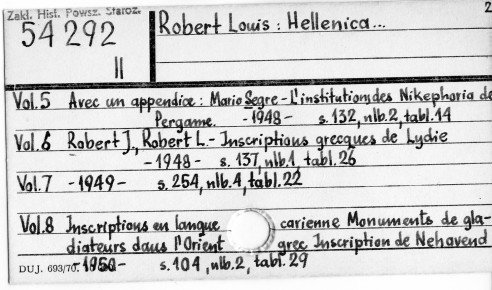 Zakł. Hist. Powsz. Staroż.
2
54 292
II
Robert Louis : Hellenica...
Vol.5 Avec un appendice : Mario Segre - L'institution des Nikephoria de
Pergame. -1948- s.132, nlb.2, tabl.14
Vol.6 Robert J., Robert L. - Inscriptions grecques de Lydie
-1948- s.137, nlb.1, tabl.26
Vol.7 -1949- s.254, nlb.4, tabl.22
Vol.8 Inscriptions en langue carienne Monuments de gla-
diateurs daus l'Orient grec Inscription de Nehavend
DUJ. 693/70. -1950- s.104, nlb.2, tabl.29